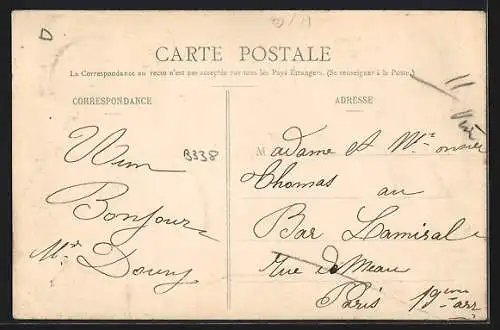 D
CARTE POSTALE
La Correspondance au recto n'est pas acceptée par tous les Pays Étrangers. (Se renseigner à la Poste.)
CORRESPONDANCE
ADRESSE
Un
B338
Bonjour
Mr Doury
Madame et Monsieur
Thomas au
Bar Lamiral
Rue de Meau
Paris 19eme arr